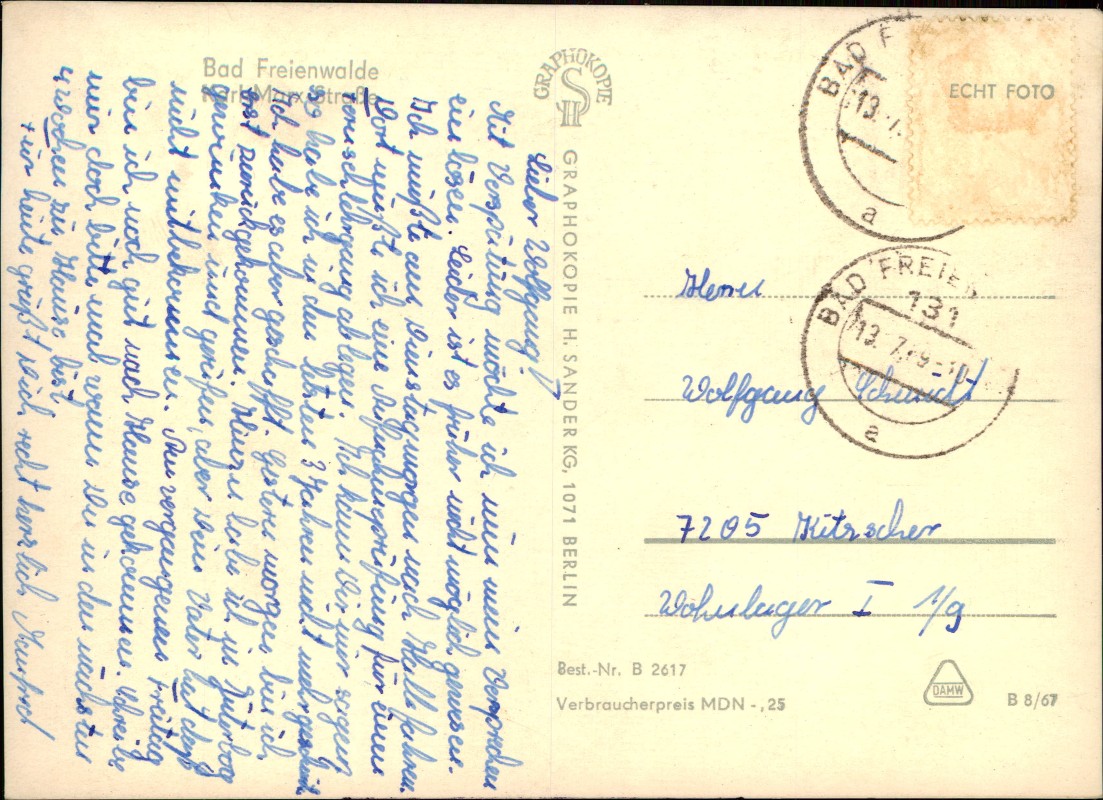 Bad Freienwalde
Karl-Marx-Straße
Lieber Wolfgang!
Mit Verspätung möchte ich nun mein Versprechen
einlösen. Leider ist es früher nicht möglich gewesen.
Ich mußte am Dienstagmorgen nach Halle fahren.
Dort mußte ich eine Aufnahmeprüfung für einen
ablegen. Ich kann Dir nur sagen,
so habe ich in den letzten 3 Jahren nicht mehr geschwitzt.
Ich habe es aber geschafft. Gestern morgen bin ich
erst zurückgekommen. habe ich in Jüterbog
gewunken und gerufen, aber Dein Vater hat das
nicht mitbekommen. Am vergangenen Freitag
bin ich noch gut nach Hause gekommen. Schreibe
mir doch bitte mal wann Du in den nächsten
4 Wochen zu Hause bist.
Für heute grüßt Dich recht herzlich Manfred
GRAPHOKOPIE
SH
GRAPHOKOPIE H. SANDER KG, 1071 BERLIN
ECHT FOTO
BAD F
13. 7.
a
BAD FREIEN
131
13. 7. 69 - 10
a
Herrn
Wolfgang Schmidt
7205 Kitzscher
Wohnlager I 1/9
Best.-Nr. B 2617
Verbraucherpreis MDN -,25
DAMW
B 8/67